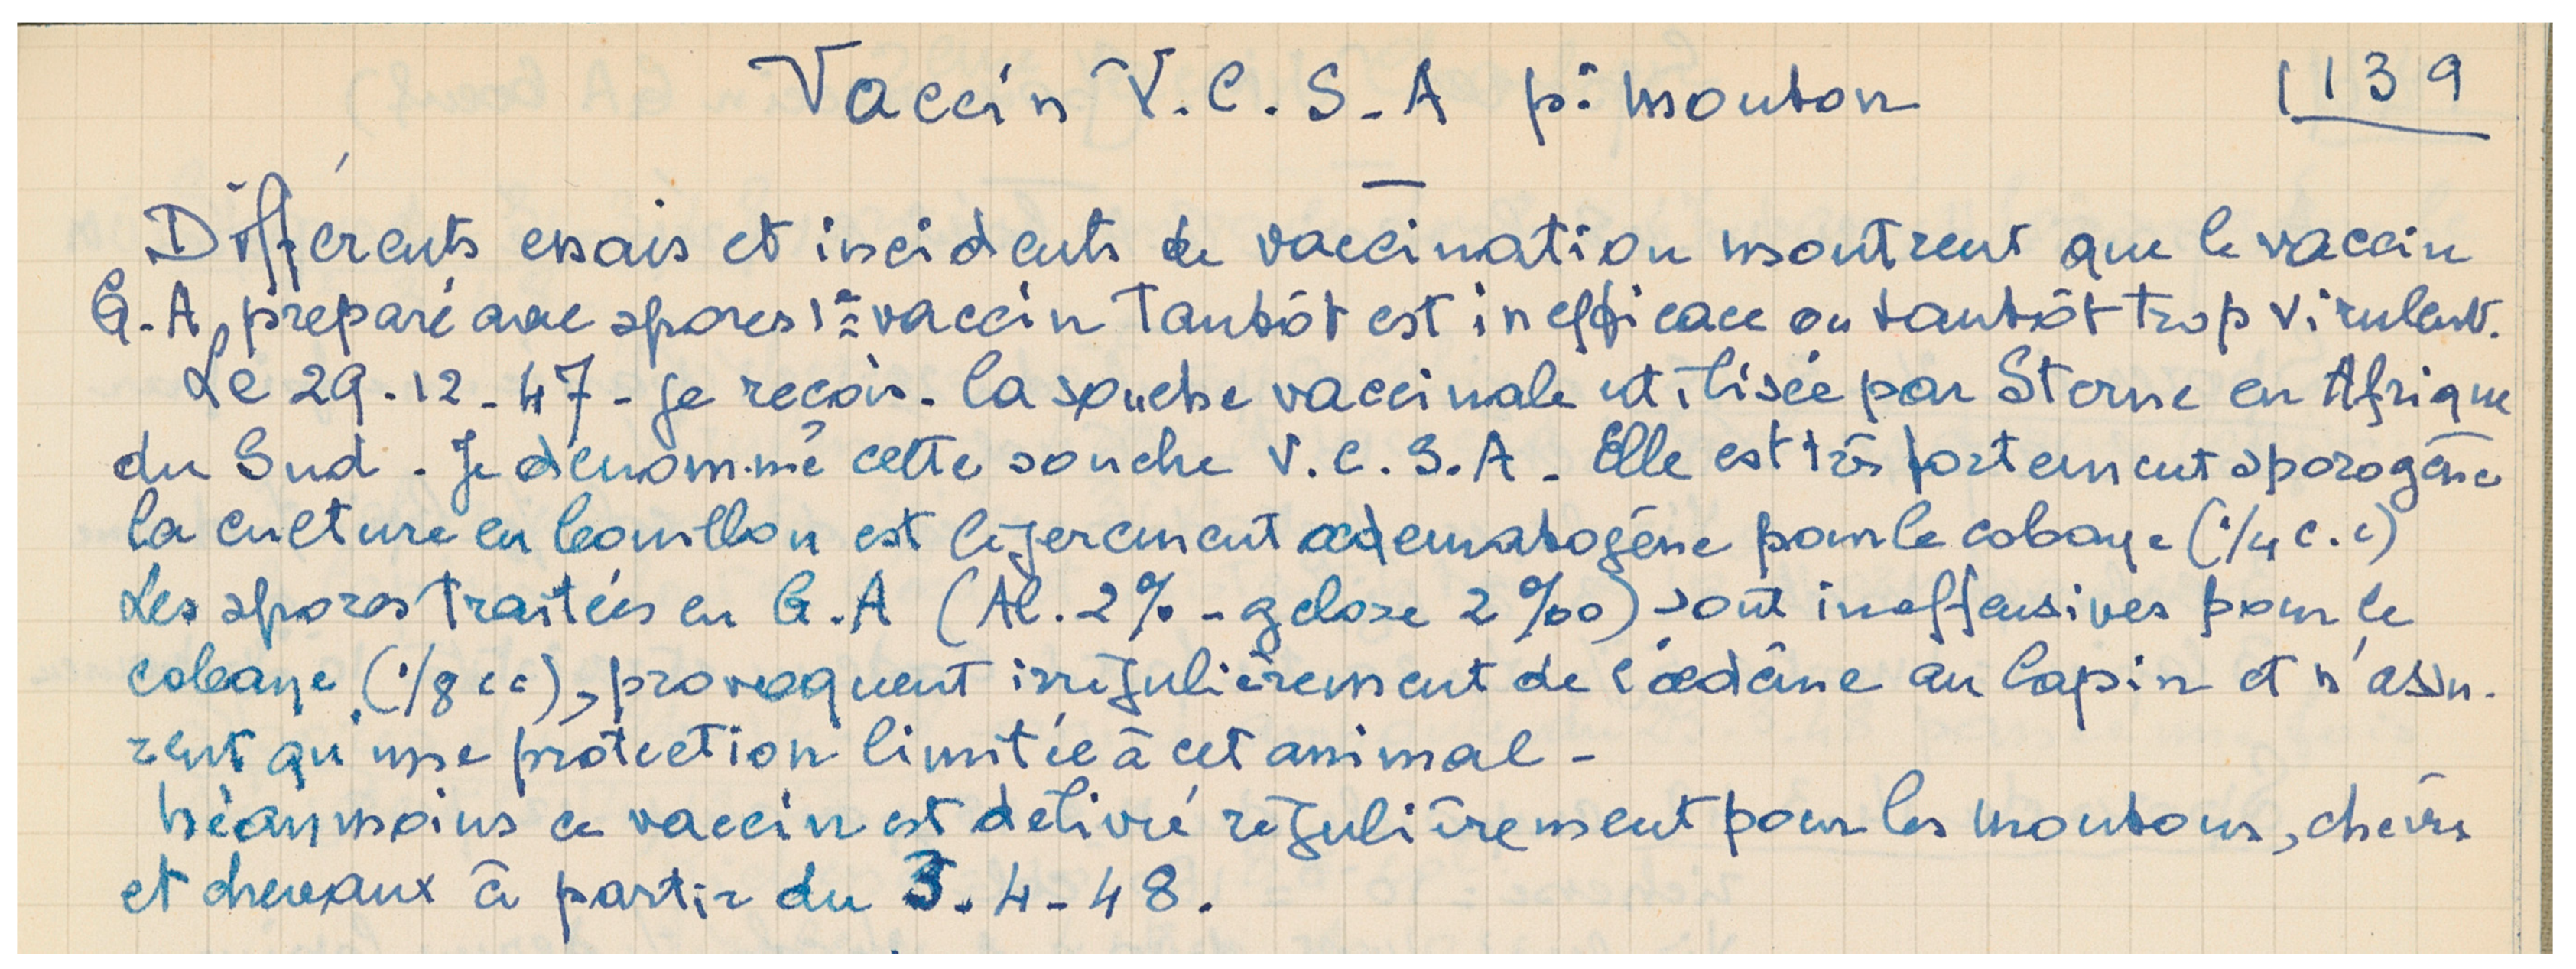 Vaccin V.C.S-A pr mouton
139
Différents essais et incidents de vaccination montrent que le vaccin
G.A, préparé avec spores 1er vaccin tantôt est inefficace ou tantôt trop virulent.
Le 29-12-47- je reçois la souche vaccinale utilisée par Sterne en Afrique
du Sud. Je dénomme cette souche V.C.S.A. Elle est très fortement sporogène
la culture en bouillon est légèrement œdematogène pour le cobaye (1/4 c.c)
Les spores traitées en G.A (Al. 2% - gélose 2‰) sont inoffensives pour le
cobaye (1/8 cc), provoquent irrégulièrement de l'œdème au lapin et n'assu-
rent qu'une protection limitée à cet animal -
Néanmoins ce vaccin est délivré régulièrement pour les moutons, chèvres
et chevaux à partir du 3.4-48.